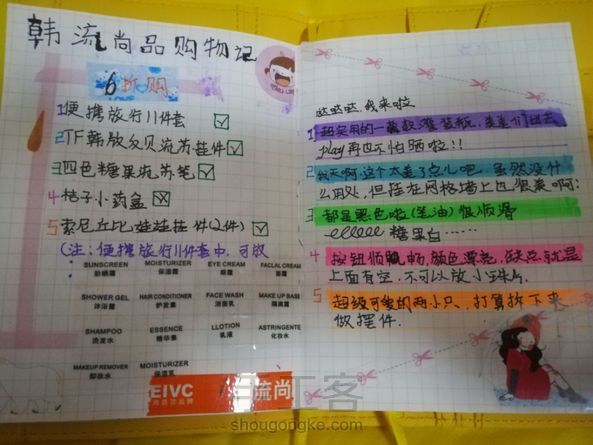 韩流尚品购物记
6折购
1便携旅行11件套
2TF韩版反贝流苏挂件
3四色糖果流苏笔
4桔子小药盒
5索尼丘比娃娃挂件(2件)
(注:便携旅行11件套中,可放
SUNSCREEN MOISTURIZER EYE CREAM FACIAL CREAM
防晒霜 保湿霜 眼霜 面霜
SHOWER GEL HAIR CONDITIONER FACE WASH MAKE UP BASE
沐浴露 护发素 洁面乳 隔离霜
SHAMPOO ESSENCE LLOTION ASTRINGENTE
洗发水 精华素 乳液 化妆水
MAKEUP REMOVER MOISTURIZER
卸妆水 保湿乳
EIVC
流尚
哒哒哒 我来啦
1超实用的一款数灌装瓶,美美们出去
play再也不怕晒啦!!
2我天啊这个太美了点儿吧,虽然没什
么用处,但挂在网格墙上也很美啊!
3都是黑色啦(笔油)很顺滑
糖果白……
4按钮顺畅,颜色漂亮,缺点就是
上面有空,不可以放小珠片
5超级可爱的两小只,打算拆下来
做摆件.
shougongke.com